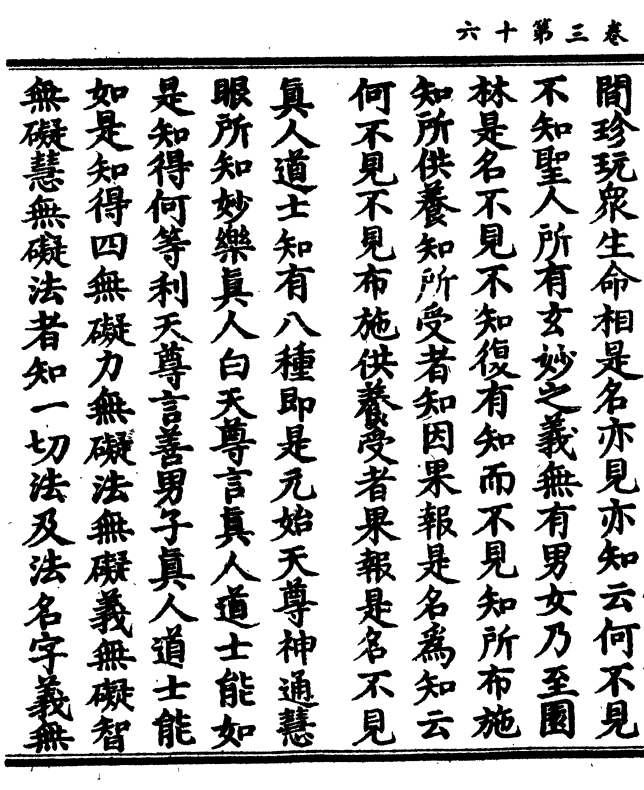 卷三第十六
間珍玩衆生命相是名亦見亦知云何不見
不知聖人所有玄妙之義無有男女乃至園
林是名不見不知復有知而不見知所布施
知所供養知所受者知因果報是名爲知云
何不見不見布施供養受者果報是名不見
眞人道士知有八種即是元始天尊神通慧
眼所知妙樂眞人白天尊言眞人道士能如
是知得何等利天尊言善男子眞人道士能
如是知得四無礙力無礙法無礙義無礙智
無礙慧無礙法者知一切法及法名字義無